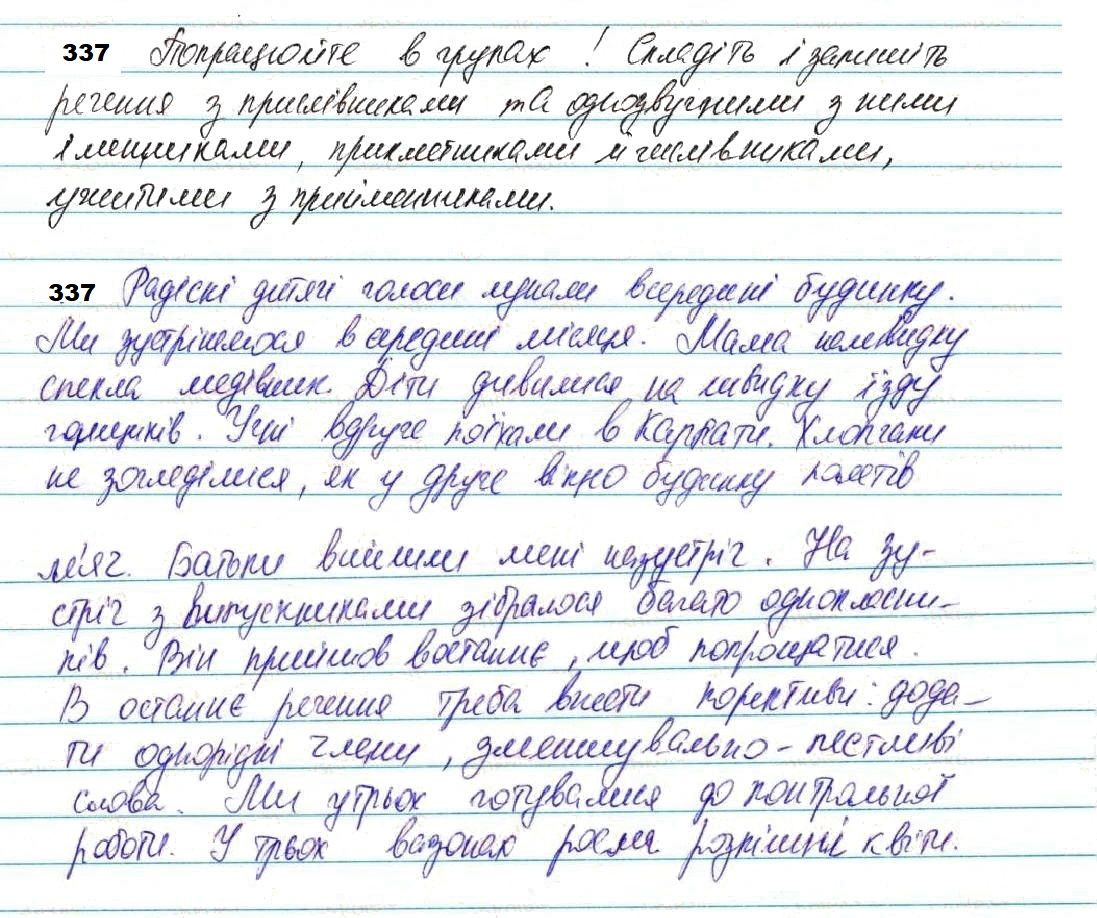 337 Попрацюйте в групах! Складіть і запишіть
речення з прислівниками та однозвучними з ними
іменниками, прикметниками й числівниками,
ужитими з прийменниками.
337 Радісні дитячі голоси лунали всередині будинку.
Ми зустрінемося в середині місяця. Мама нашвидку
спекла медівник. Діти дивилися на швидку їзду
гонщиків. Учні вдруге поїхали в Карпати. Хлопчаки
не згледілися, як у друге вікно будинку полетів
м'яч. Батьки вийшли мені назустріч. На зу-
стріч з випускниками зібралося багато однокласни-
ків. Він прийшов востаннє, щоб попрощатися.
В останнє речення треба внести корективи: дода-
ти однорідні члени, зменшувально-пестливі
слова. Ми утрьох готувалися до контрольної
роботи. У трьох вазонах росли розкішні квіти.